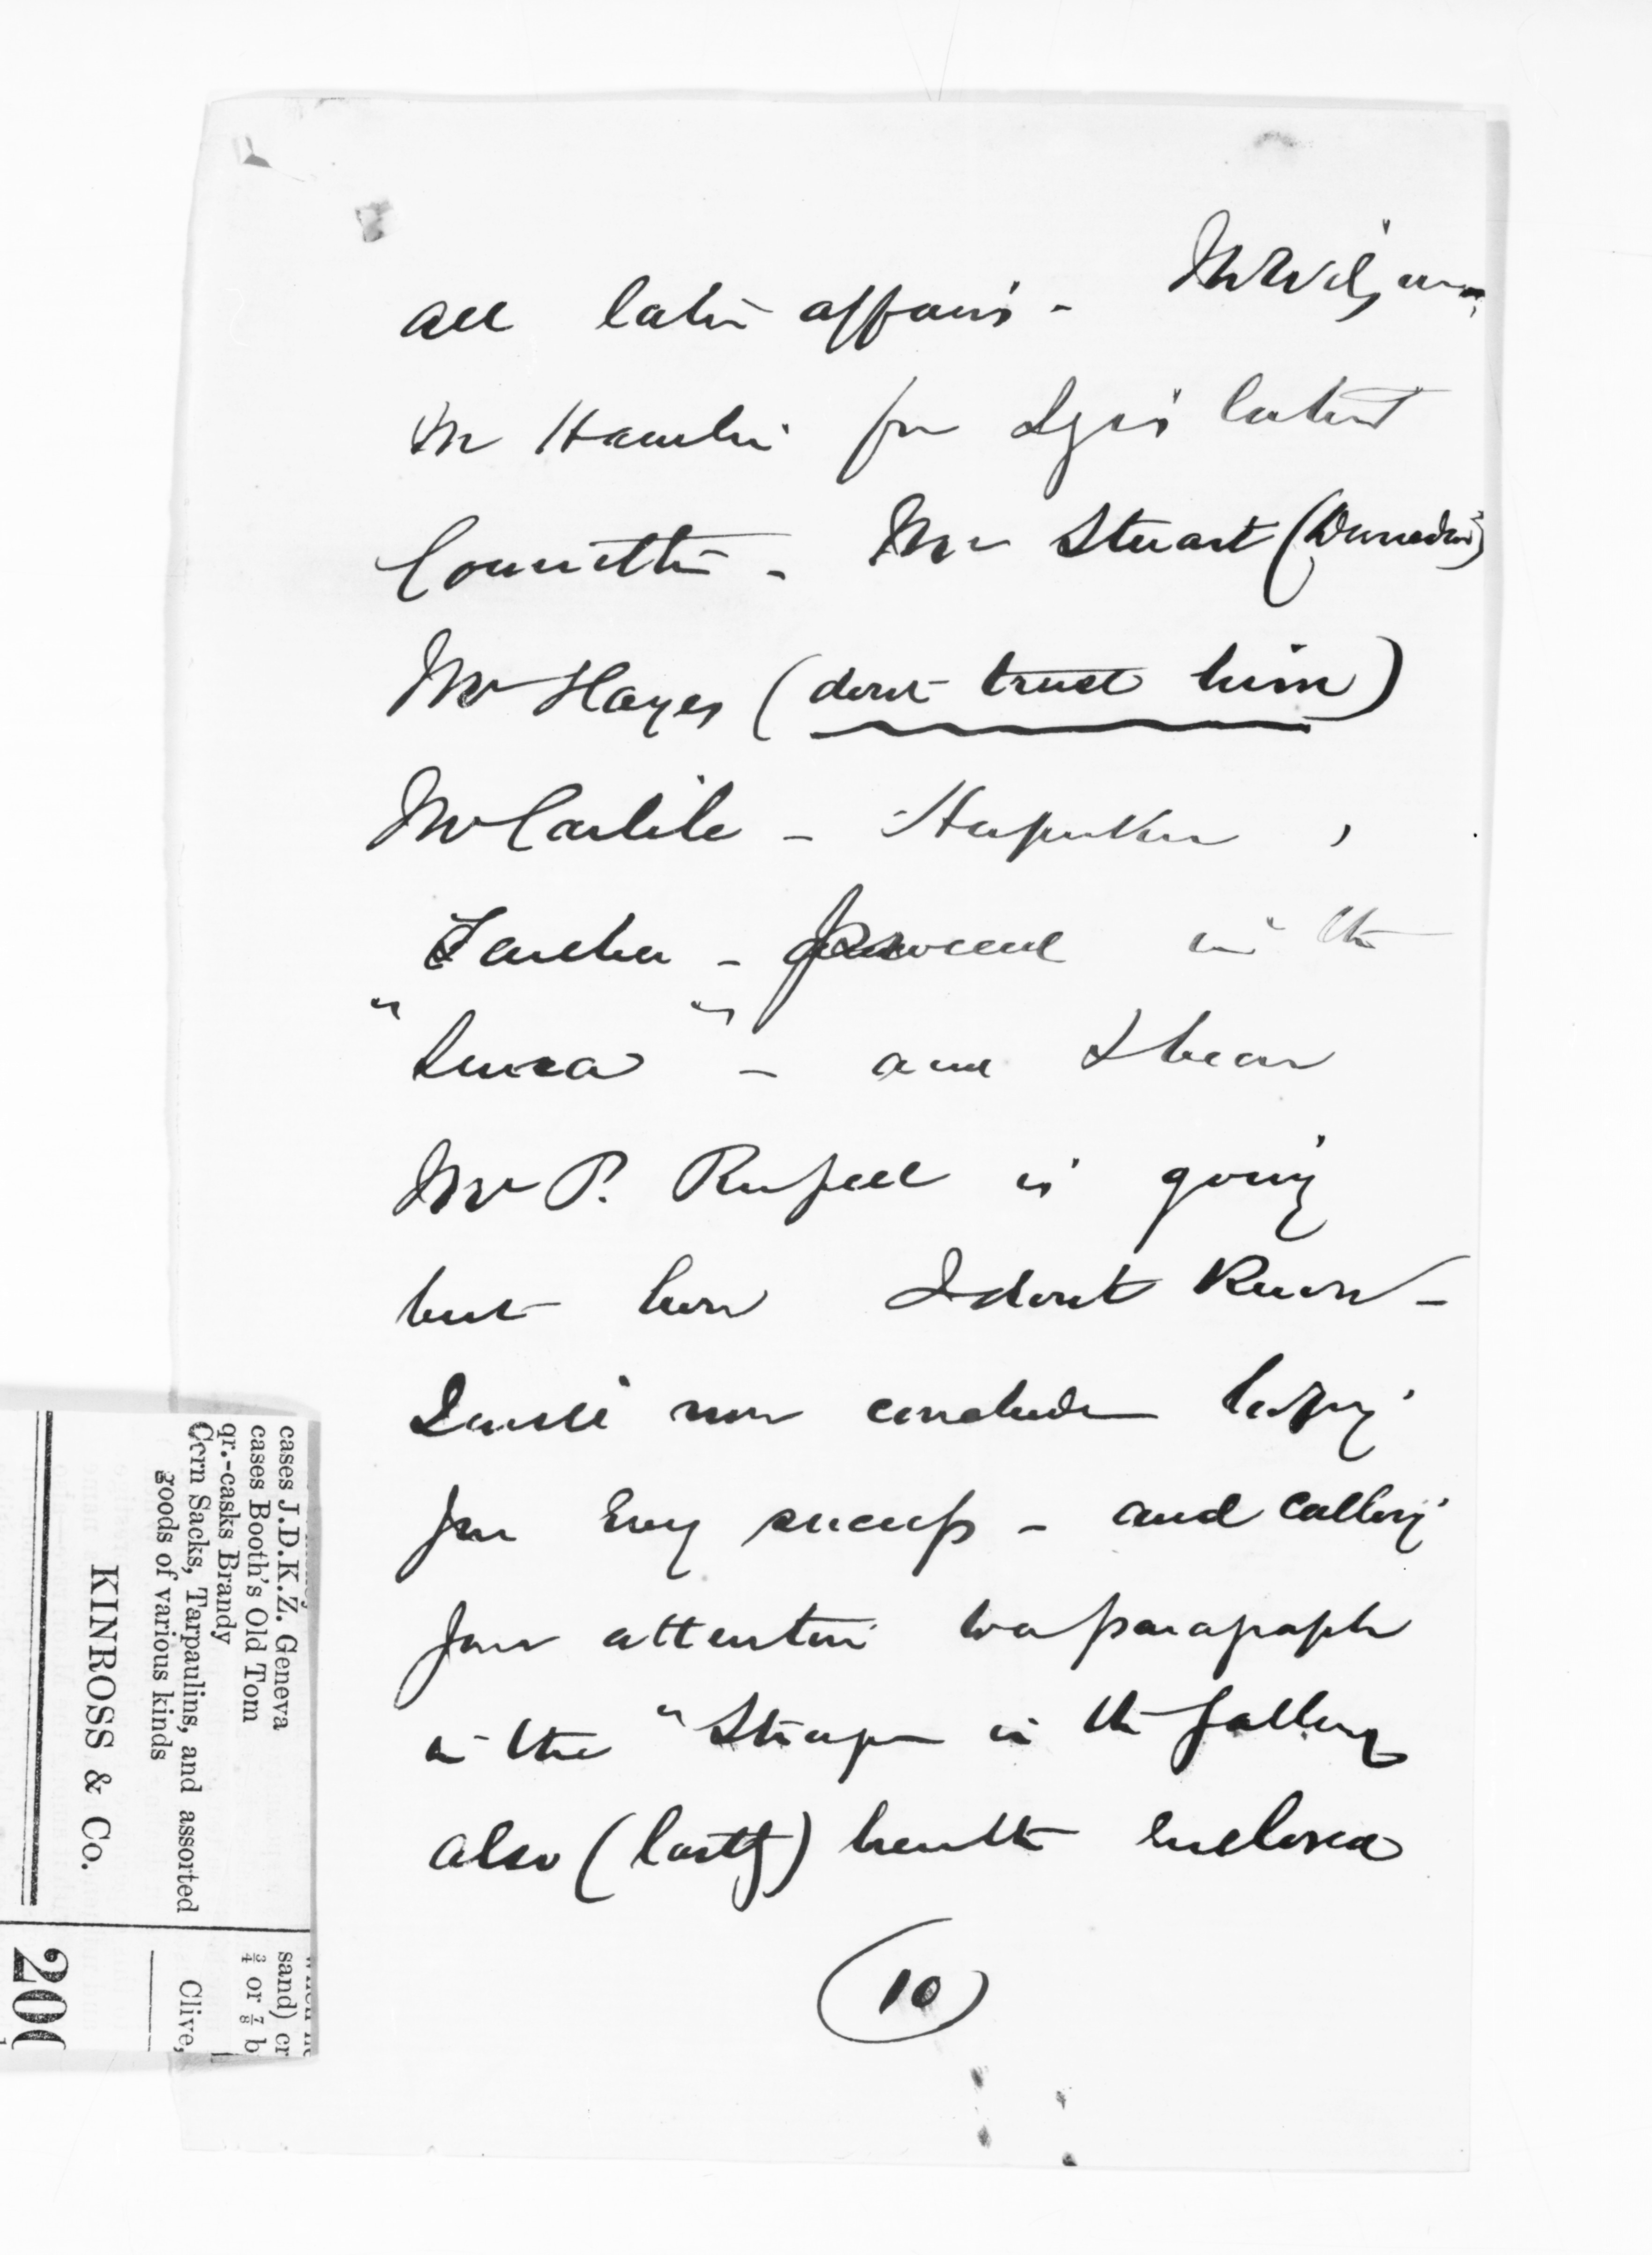 all later affairs -
Mr Hamlin for Lgis
Committee - Mr Stuart (Dunedin)
Mr Hayes (dont trust him)
Mr Carlile - Hapuku,
Tareha - proceed in the
"Luna" - and I hear
Mr P. Russell is going
but how I dont Know -
I will now conclude hoping
for Every success - and calling
your attention to a paragraph
in the "Stranger in the Gallery
also (lastly) enclosed
10
cases J.D.K.Z. Geneva
cases Booth's Old Tom
qr.-casks Brandy
Corn Sacks, Tarpaulins, and assorted
goods of various kinds
KINROSS & Co.
sand) cr
¾ or ⅞ b
Clive,
200